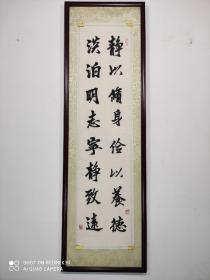 静以脩身俭以养德
淡泊明志宁静致远
SHOT ON REDMI K30
AI QUAD CAMERA